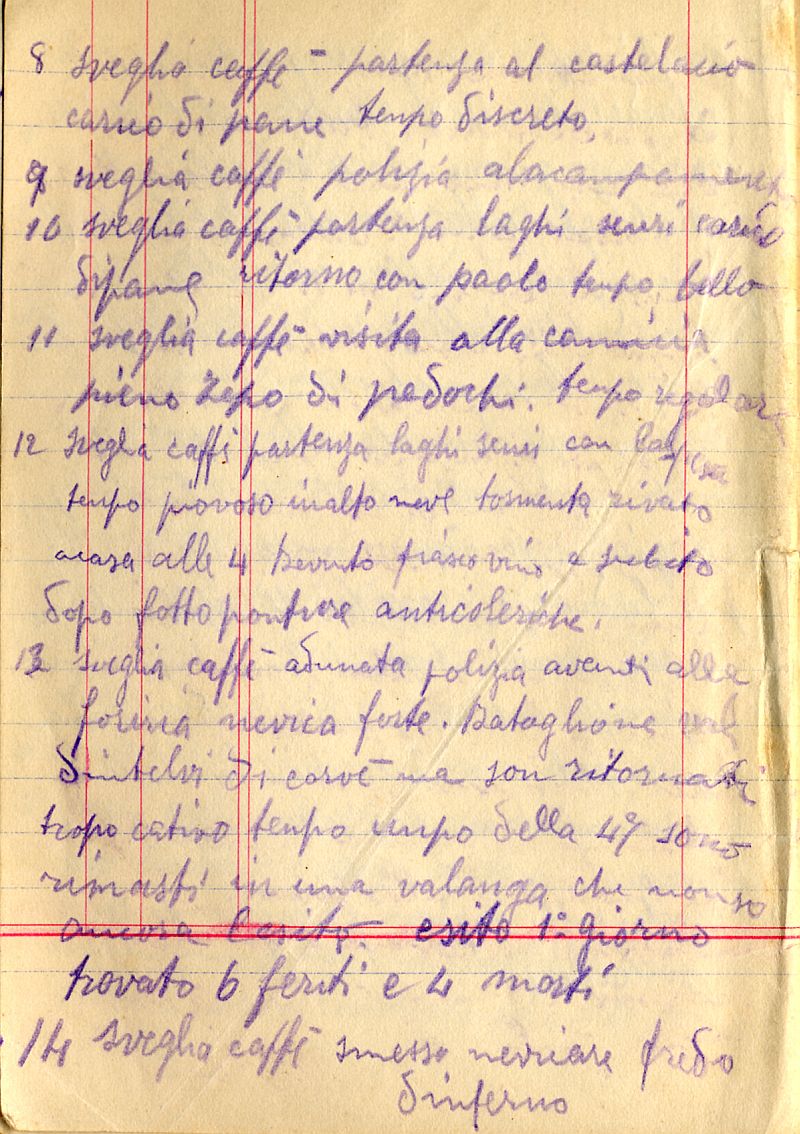 8 sveglia caffè - partenza al castelacio
carico di pane tempo discreto.
9 sveglia caffè polizia alacampamento
10 sveglia caffè partenza laghi seuri carico
dipane ritorno con paolo tempo bello
11 sveglia caffè visita alla camicia
pieno zepo di pedochi. tempo regolare
12 sveglia caffè partenza laghi seuri con
tempo piovoso inalto neve tormenta rivato
acasa alle 4 Bevuto fiasco vino e subito
dopo fatto ponture anticoleriche.
13 sveglia caffè adunata polizia avanti alla
forina nevica forte. Bataglione val
dintelvi di corvè ma son ritornati
tropo cativo tempo unpo della 49 sono
rimasti in una valanga che non so
ancora lesito. esito 1° giorno
trovato 6 feriti e 4 morti
14 sveglia caffè smesso nevicare fredo
dinferno